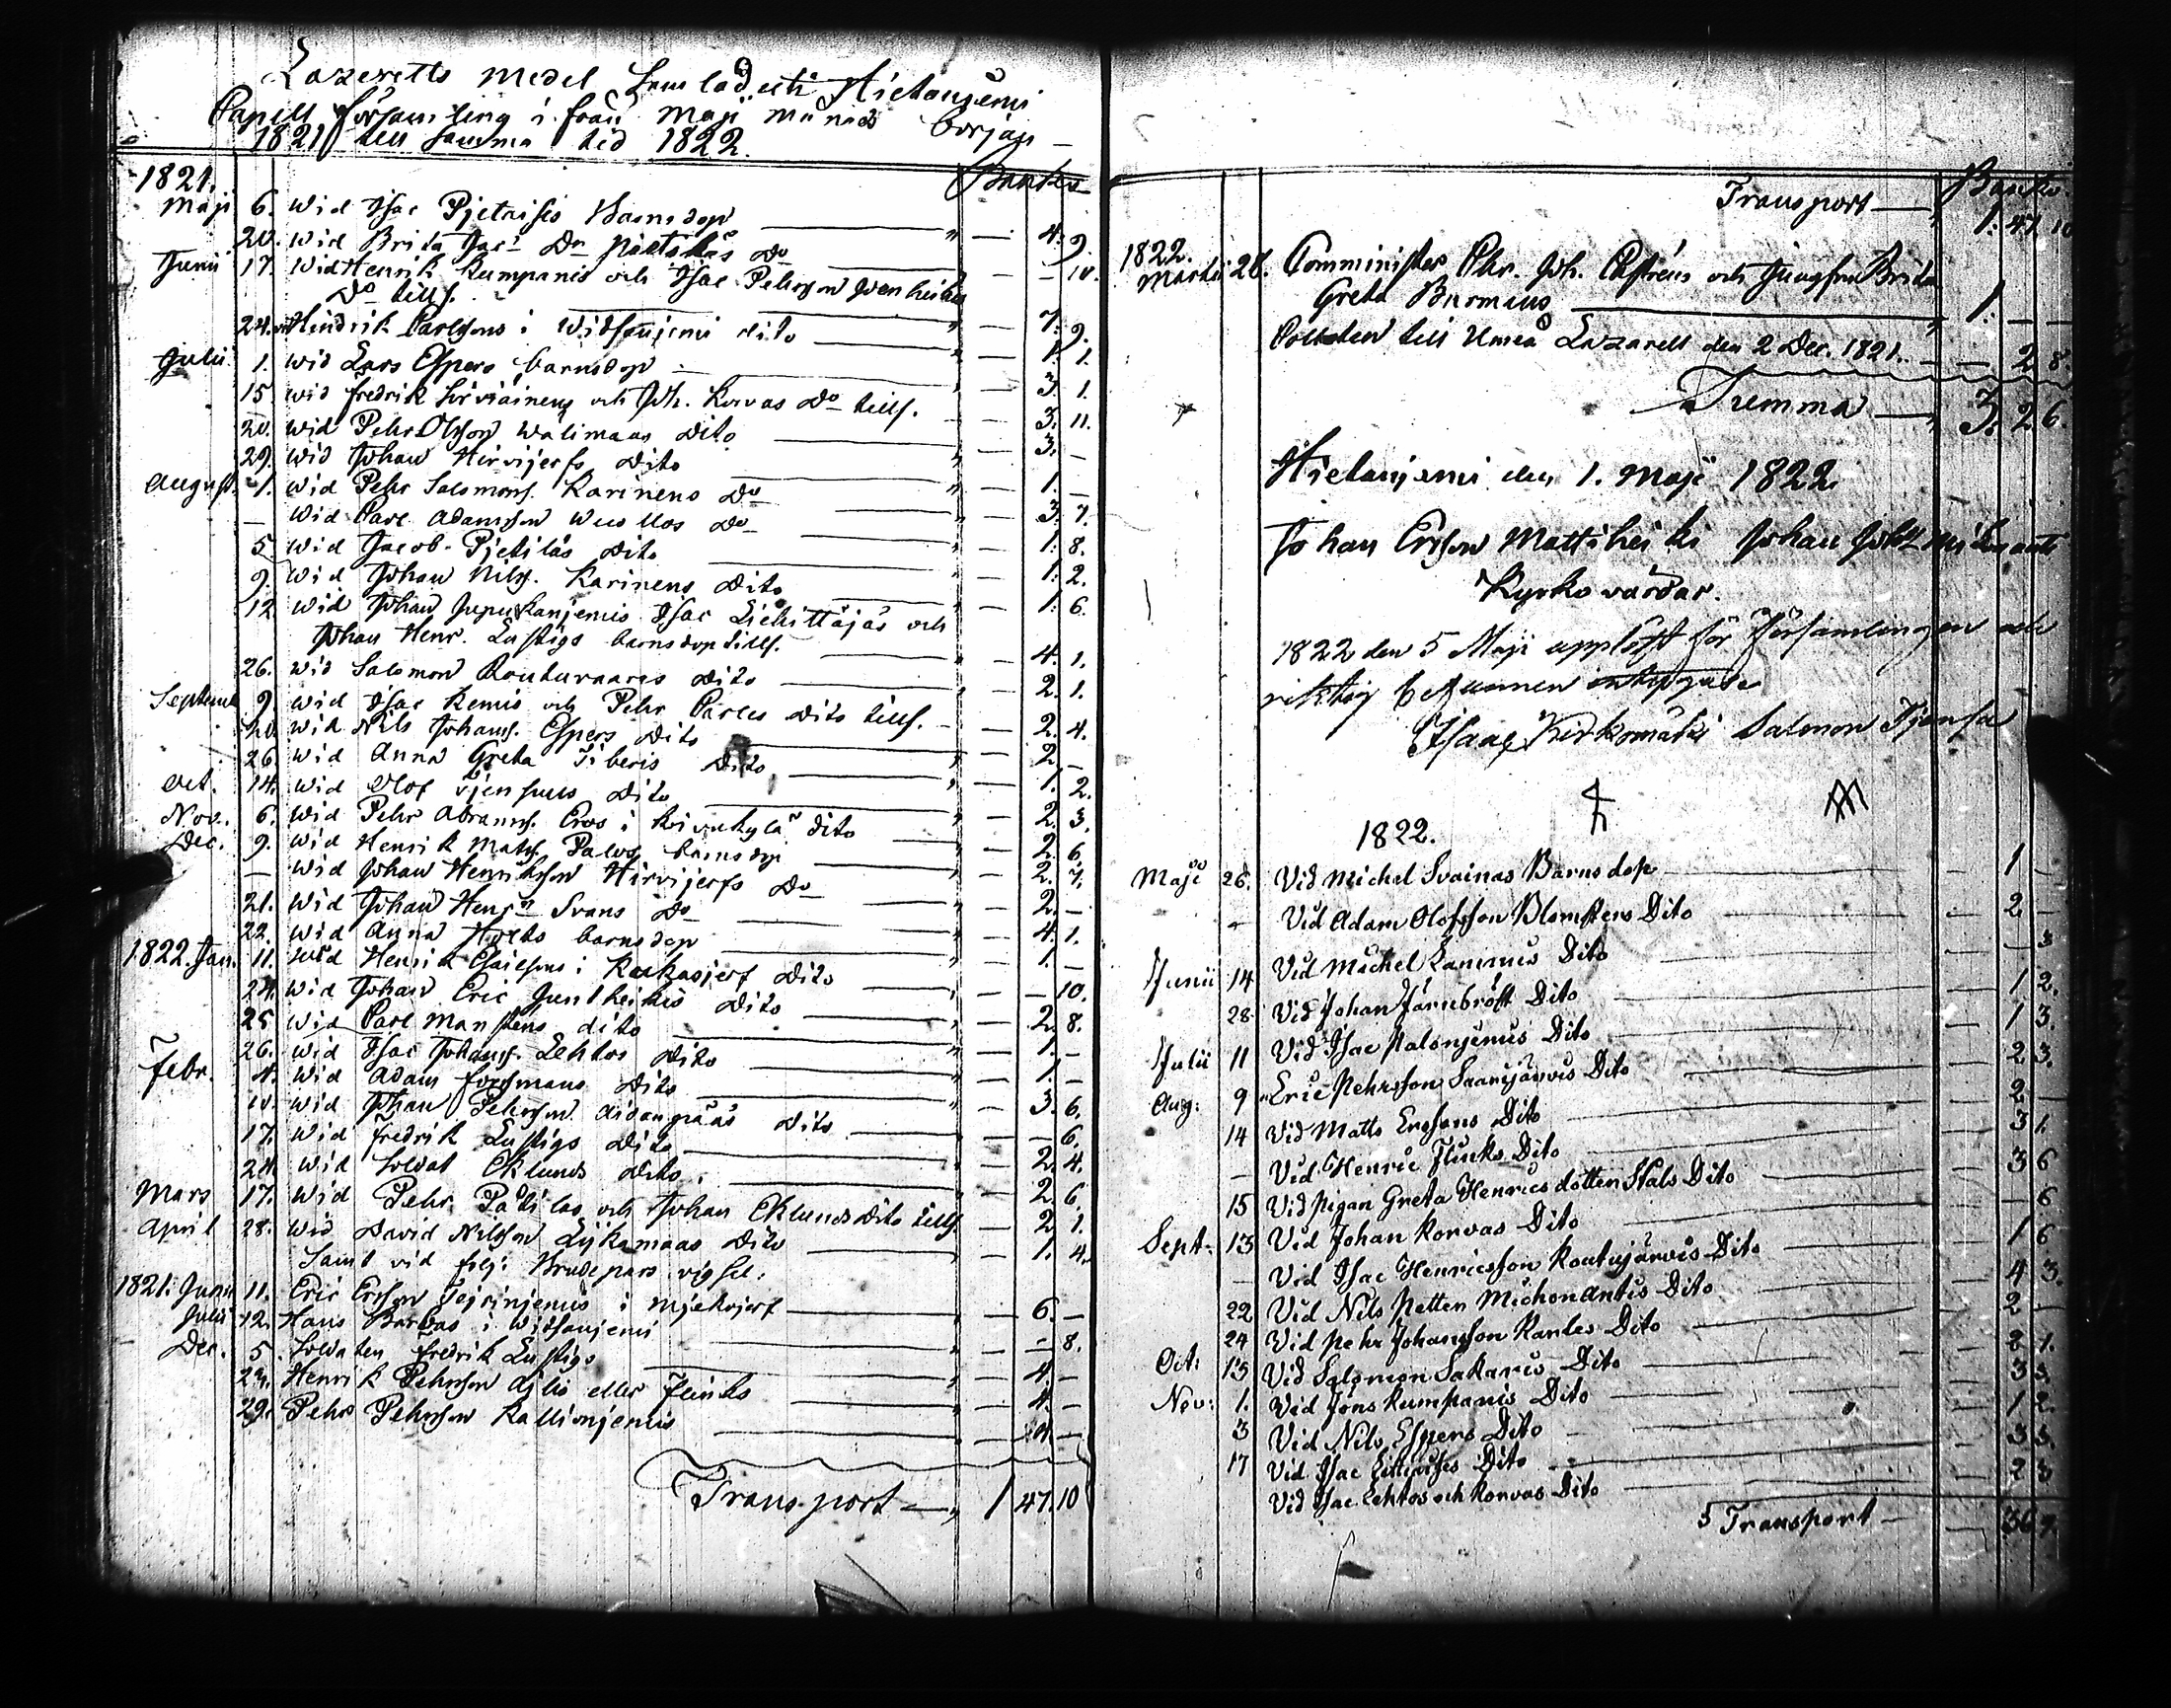 Lazeretts medel Samlad uti Hietaniemi
Capell församling ifrån Maji månads början
1821 till samma tid 1822.
1821. Banko
Maji 6. Wid Isac Pjetrisis Barnsdop — 4. 9.
20. Wid Brita Do — 10.
Junii 17. Wid Henrik Kumpanis och Isac Pehrsson
Do tills. — 7. 9.
24. Hindrik Carlssons i Witsaniemi dito — 1. 1.
Julii 1. wid Lars Espers barnsdop — 3. 1.
15. wid Fredrik och Joh. Korvas Do tills. — 3. 11.
20. Wid Pehr Olsson Wälimaas dito — 3. —
29. Wid Johan Hirvijerfs dito — 1. —
August. 1. Wid Pehr Salomons. Karinens Do — 3. 7.
— Wid Carl Adamsson Do — 1. 8.
5. Wid Jacob Pjetiläs dito — 1. 2.
9. Wid Johan Nilss. Karinens dito — 1. 6.
12. Wid Johan Isac Liehittäjäs och
Johan Henr. Lustigs barnsdop tills. — 4. 1.
26. Wid Salomon Rautuvaaras dito — 2. 1.
Septemb. 9. Wid Isac Kemis och Pehr Carles dito tills. — 2. 4.
20. Wid Nils Johans. Espers dito — 2. —
26. Wid Anna Greta Tiberis dito — 1. 2.
Oct. 14. Wid Olof dito — 2. 3.
Nov. 6. Wid Pehr Abramss. Eros i Koivukylä dito — 2. 6.
Dec. 9. Wid Henrik Matss. Palos barnsdop — 2. 7.
— Wid Johan Henriksson Hirvijerfs Do — 2. —
21. Wid Johan Svans Do — 4. 1.
22. Wid Anna barnsdop — 1. —
1822. Jan. 11. Wid Henrik i dito — 10.
24. Wid Johan Eric Juntheikis dito — 2. 8.
25. Wid Carl Manstens dito — 1. —
26. Wid Isac Johanss. Lehtos dito — 1. —
Febr. 4. Wid Adam Forssmans dito — 3. 6.
10. Wid Johan Pehrsson dito — 6.
17. Wid Fredrik Lustigs dito — 2. 4.
24. Wid Soldat Eklunds dito — 2. 6.
Mars 17. Wid Pehr och Johan Eklunds dito tills. — 2. 1.
April 28. Wid David Nilsson dito — 1. 4.
Samt vid följ: Brudepars vigsel:
1821. Junii 11. Eric Ersson i Mjekojerf — 6. —
Julii 12. Hans Barbas i Witsaniemi — 8.
Dec. 5. Soldaten Fredrik Lustigs — 4. —
23. Henrik Pehrsson Ajlis eller Flinks — 4. —
29. Pehr Pehrsson Kallioniemis — 4. —
Transport — 1 47. 10
Banko
Transport — 1. 47. 10
1822.
Martii 28. Comminister Chr. Joh. Castréns och Jungfru Brita
Greta Burmans — 1. — —
Collecten till Umeå Lazarett den 2 Dec. 1821. — 2. 8.
Summa — 3. 2. 6.
Hietaniemi den 1. Maji 1822.
Johan Ersson Mattiheiki Johan
Kyrko vårdar.
1822 den 5 Maji uppläst för Församlingen och
riktig befunnen
Isaac Kirkomäki Salomon
1822.
Maji 26. Vid Michel Svainas Barnsdop — 1 —
— Vid Adam Olofsson Blomsters Dito — 2 —
Junii 14 Vid Michel Dito — 3
28 Vid Johan Järnbrått Dito — 1 2.
Julii 11 Vid Isac Palonjemis Dito — 1 3.
Aug: 9 Eric Pehrsson Saarijärvis Dito — 2 3.
14 Vid Matts Erssons Dito — 2 —
— Vid Henric Flinks Dito — 3 1.
15 Vid Pigan Greta Henricsdotter Stals Dito — 3 6
Sept: 13 Vid Johan Korvas Dito — 6
— Vid Isac Henricsson Koutujärvis Dito — 1 6
22 Vid Nils Petter Michonantis Dito — 4 3.
24 Vid Pehr Johansson Kantes Dito — 2 —
Oct: 13 Vid Salomon Sakaris Dito — 2 1.
Nov: 1. Vid Jöns Kumpanis Dito — 3 3.
3 Vid Nils Espers Dito — 1 2.
17 Vid Isac Dito — 3 3.
Vid Isac Lehtos och Korvas Dito — 2 3
Transport — 36 7.